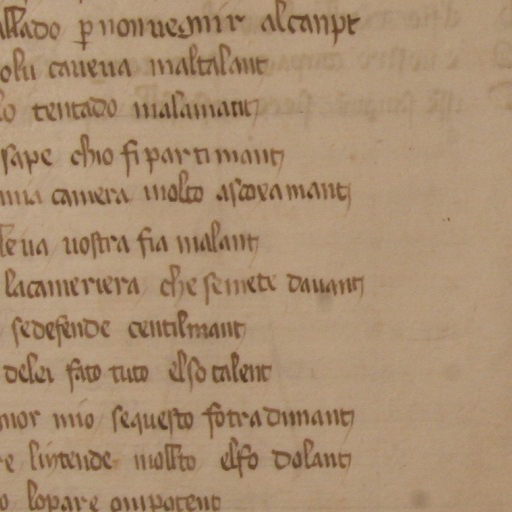 allado ꝑ non uegnir al canpt
olu caueua maltalant
lo tentado malamant
sape chio fi parti mant
mia camera molto ascoxamant
leua uostra fia malant
lacameriera che se mete dauant
se defende centilmant
delei fato tuto el so talent
nor mio se questo fo tradimant
re lintende molto el fo dolant
o lo pare onipotent